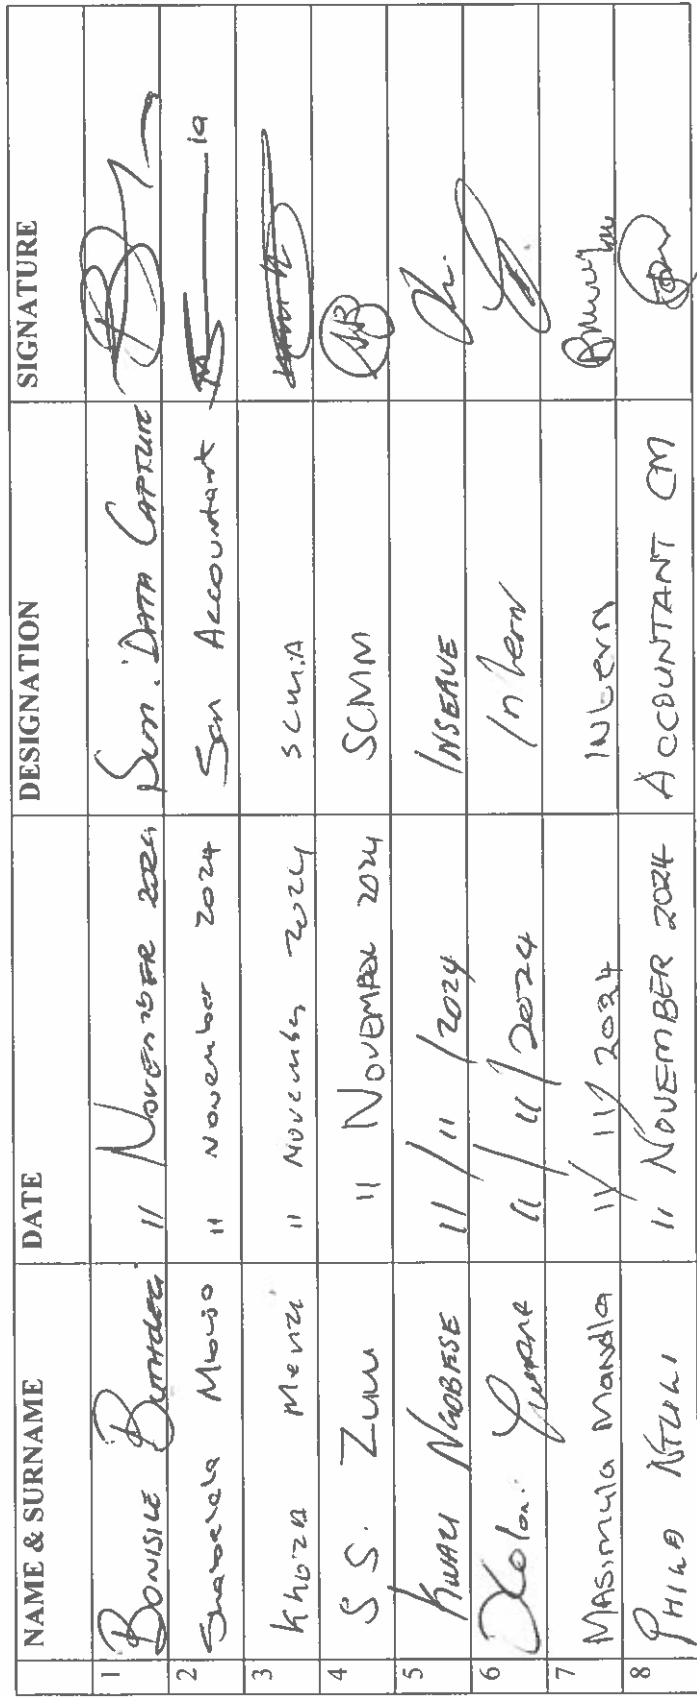 NAME & SURNAME DATE DESIGNATION SIGNATURE
1 BONISILE BUTHELEZI 11 NOVEMBER 2024 DATA CAPTURE
2 Shabalala 11 November 2024 Sen Accountant
3 Khoza Menzi 11 November 2024 SCM:A
4 S S. ZUNU 11 NOVEMBER 2024 SCMM
5 KWAZI NGOBESE 11/11/2024 INSERVE
6 Xolani 11/11/2024 Intern
7 MASIMULA MANDLA 11/11/2024 Intern
8 PHILA NTULI 11 NOVEMBER 2024 ACCOUNTANT CM